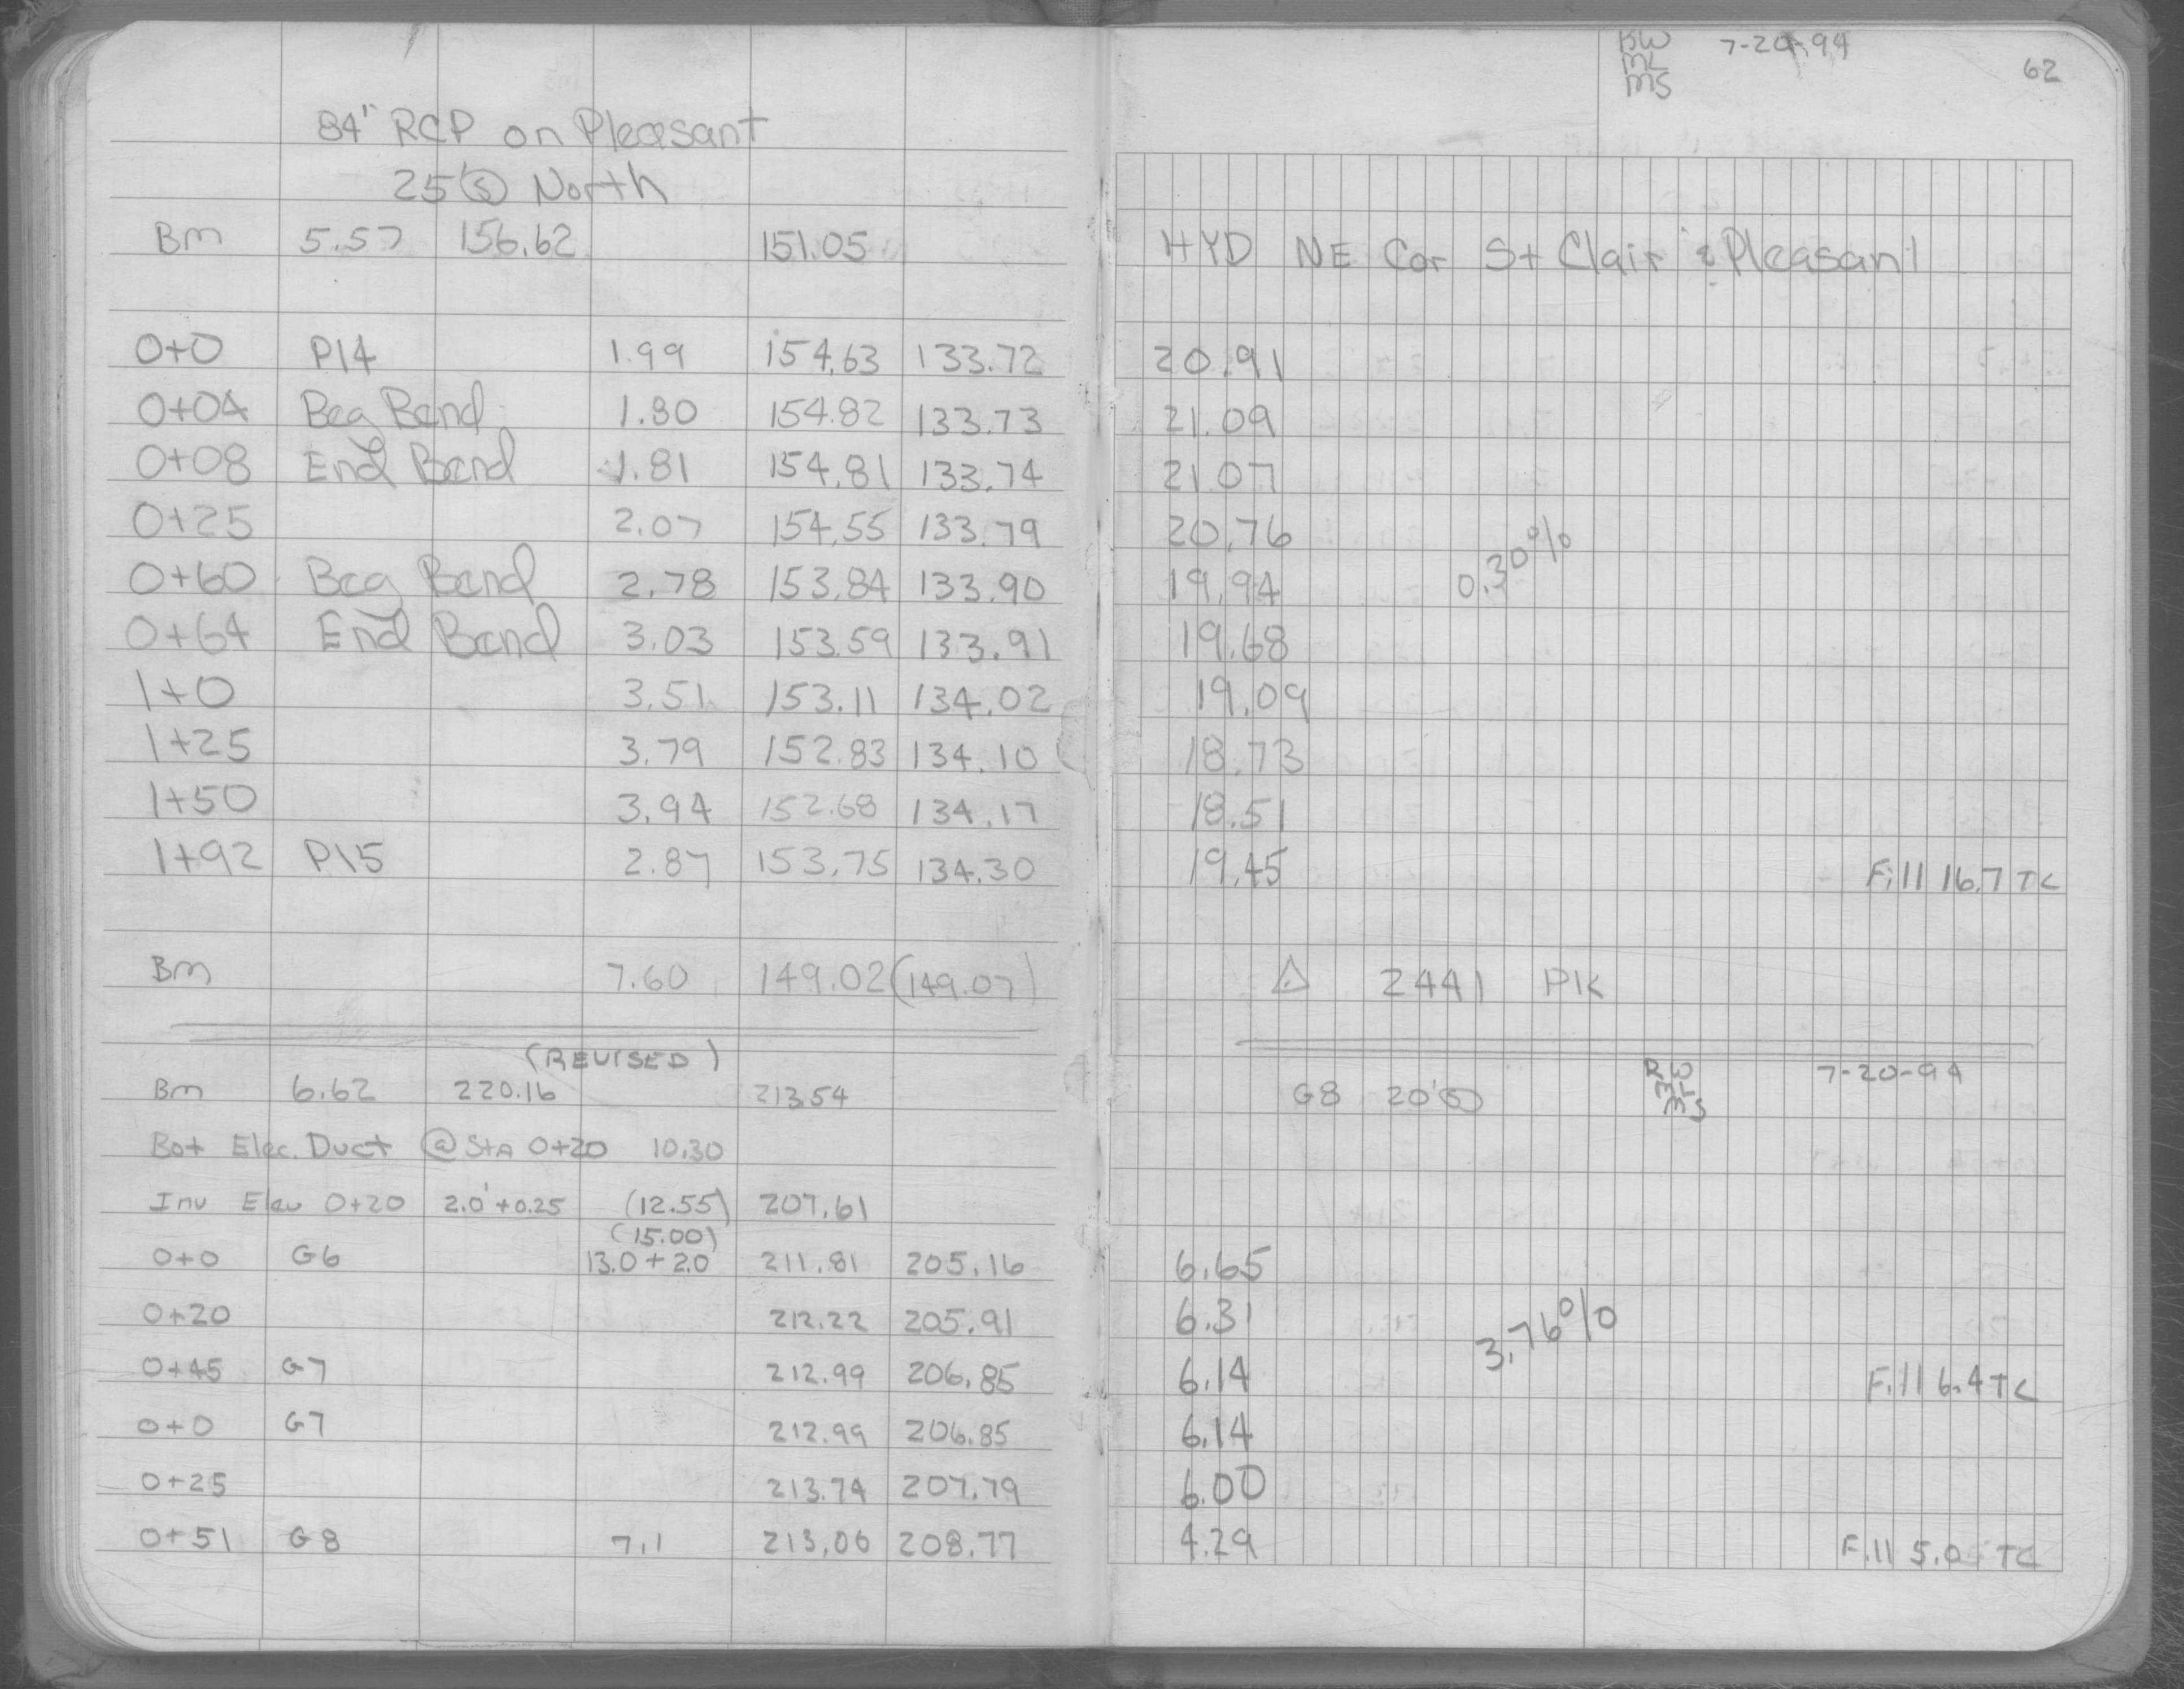 RW 7-20-94
ML
MS
62
84" RCP on Pleasant
25 Ⓢ North
Bm 5.57 156.62 151.05 HYD NE Cor St Clair & Pleasant
0+0 P14 1.99 154.63 133.72 20.91
0+04 Beg Bend 1.80 154.82 133.73 21.09
0+08 End Bend 1.81 154.81 133.74 21.07
0+25 2.07 154.55 133.79 20.76
0.30%
0+60 Beg Bend 2.78 153.84 133.90 19.94
0+64 End Bend 3.03 153.59 133.91 19.68
1+0 3.51 153.11 134.02 19.09
1+25 3.79 152.83 134.10 18.73
1+50 3.94 152.68 134.17 18.51
1+92 P15 2.87 153.75 134.30 19.45 Fill 16.7 TC
Bm 7.60 149.02 (149.07) △ 2441 PK
(REVISED)
RW 7-20-94
ML
MS
Bm 6.62 220.16 213.54 G8 20'Ⓢ
Bot Elec. Duct @ Sta 0+20 10.30
Inv Elev 0+20 2.0'+0.25 (12.55) 207.61
(15.00)
0+0 G6 13.0+2.0 211.81 205.16 6.65
0+20 212.22 205.91 6.31
3.76%
0+45 G7 212.99 206.85 6.14 Fill 6.4 TC
0+0 G7 212.99 206.85 6.14
0+25 213.79 207.79 6.00
0+51 G8 7.1 213.06 208.77 4.29 Fill 5.0 TC